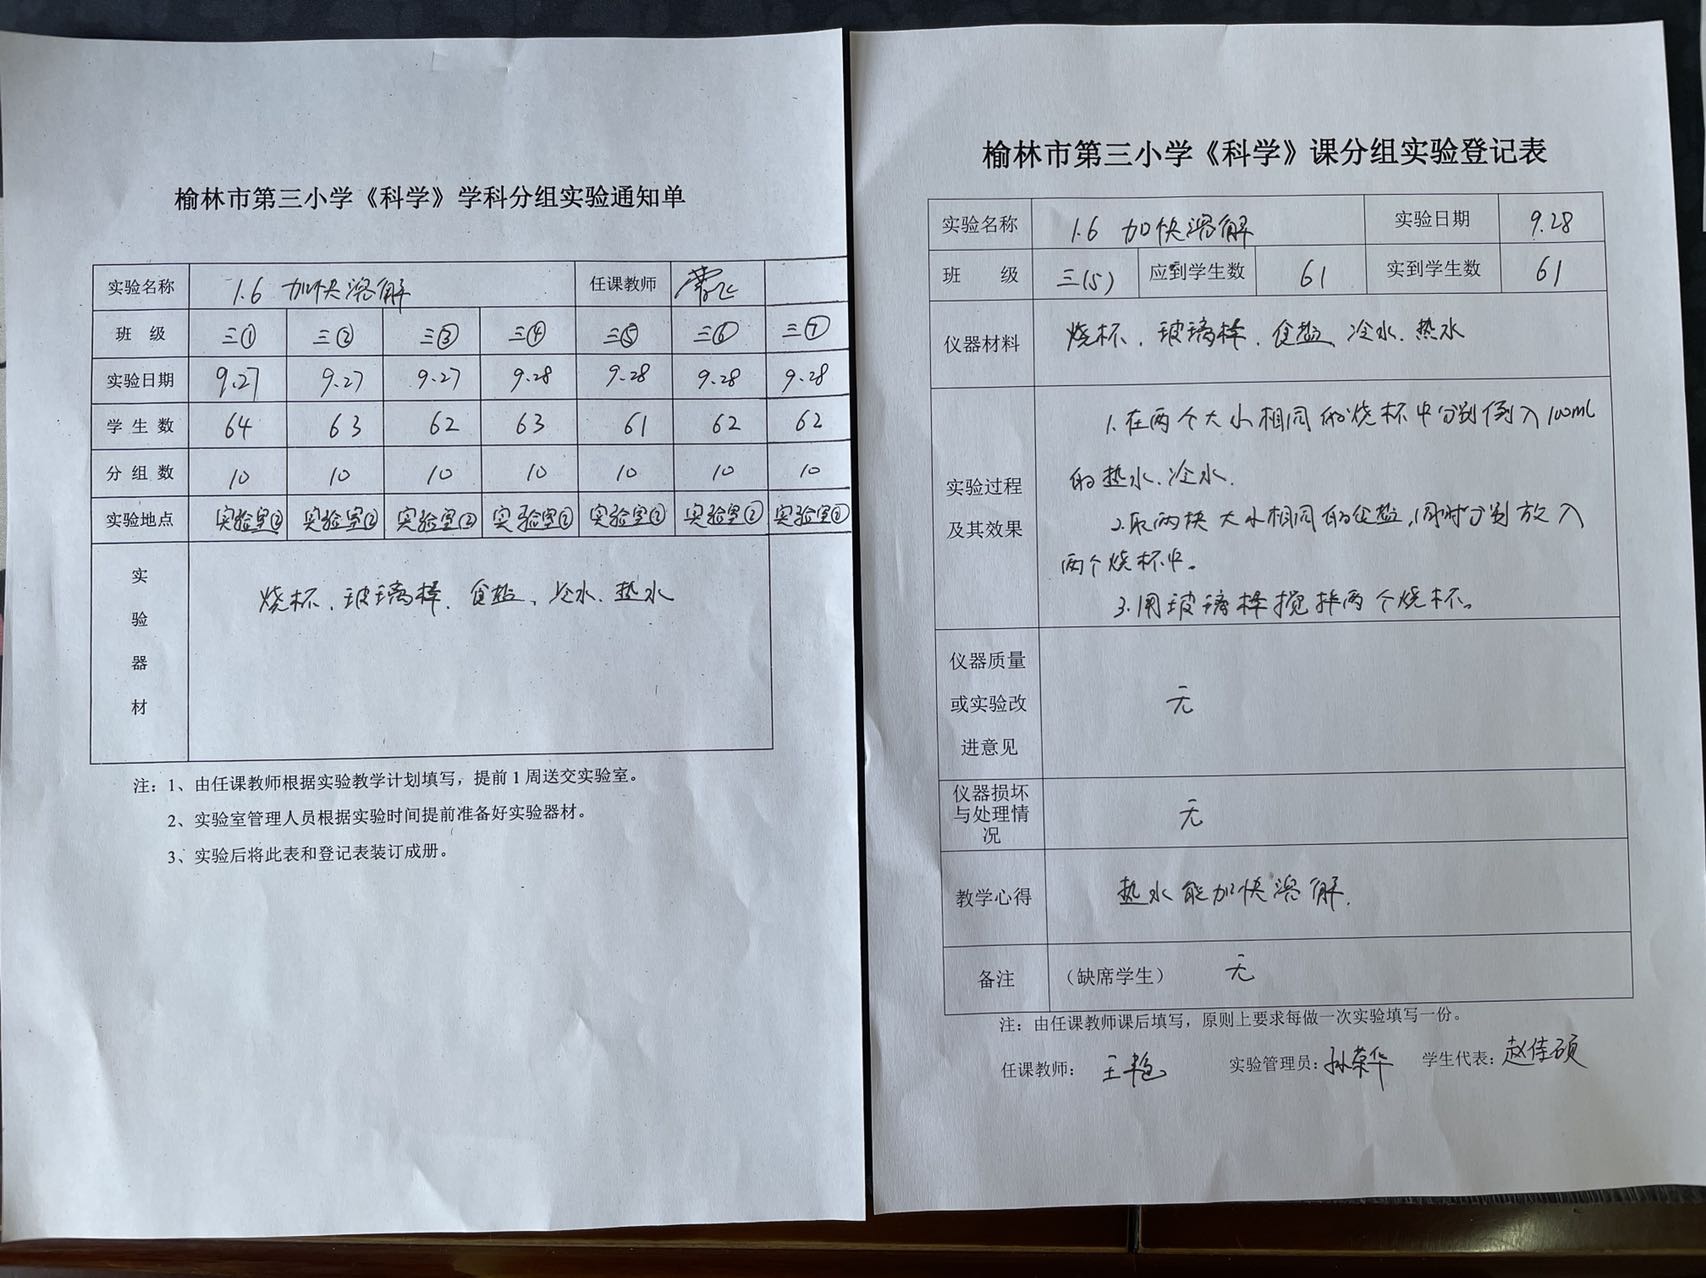 榆林市第三小学《科学》学科分组实验通知单
实验名称 1.6 加快溶解 任课教师
班 级 三① 三② 三③ 三④ 三⑤ 三⑥ 三⑦
实验日期 9.27 9.27 9.27 9.28 9.28 9.28 9.28
学 生 数 64 63 62 63 61 62 62
分 组 数 10 10 10 10 10 10 10
实验地点 实验室② 实验室② 实验室② 实验室② 实验室② 实验室② 实验室②
实验器材 烧杯、玻璃棒、食盐、冷水、热水
注：1、由任课教师根据实验教学计划填写，提前1周送交实验室。
2、实验室管理人员根据实验时间提前准备好实验器材。
3、实验后将此表和登记表装订成册。
榆林市第三小学《科学》课分组实验登记表
实验名称 1.6 加快溶解 实验日期 9.28
班 级 三(5) 应到学生数 61 实到学生数 61
仪器材料 烧杯、玻璃棒、食盐、冷水、热水
实验过程及其效果
1.在两个大小相同的烧杯中分别倒入100mL
的热水、冷水.
2.取两块大小相同的食盐,同时分别放入
两个烧杯中。
3.用玻璃棒搅拌两个烧杯。
仪器质量或实验改进意见 无
仪器损坏与处理情况 无
教学心得 热水能加快溶解.
备注 （缺席学生） 无
注：由任课教师课后填写，原则上要求每做一次实验填写一份。
任课教师： 王艳 实验管理员：孙荣华 学生代表：赵佳硕